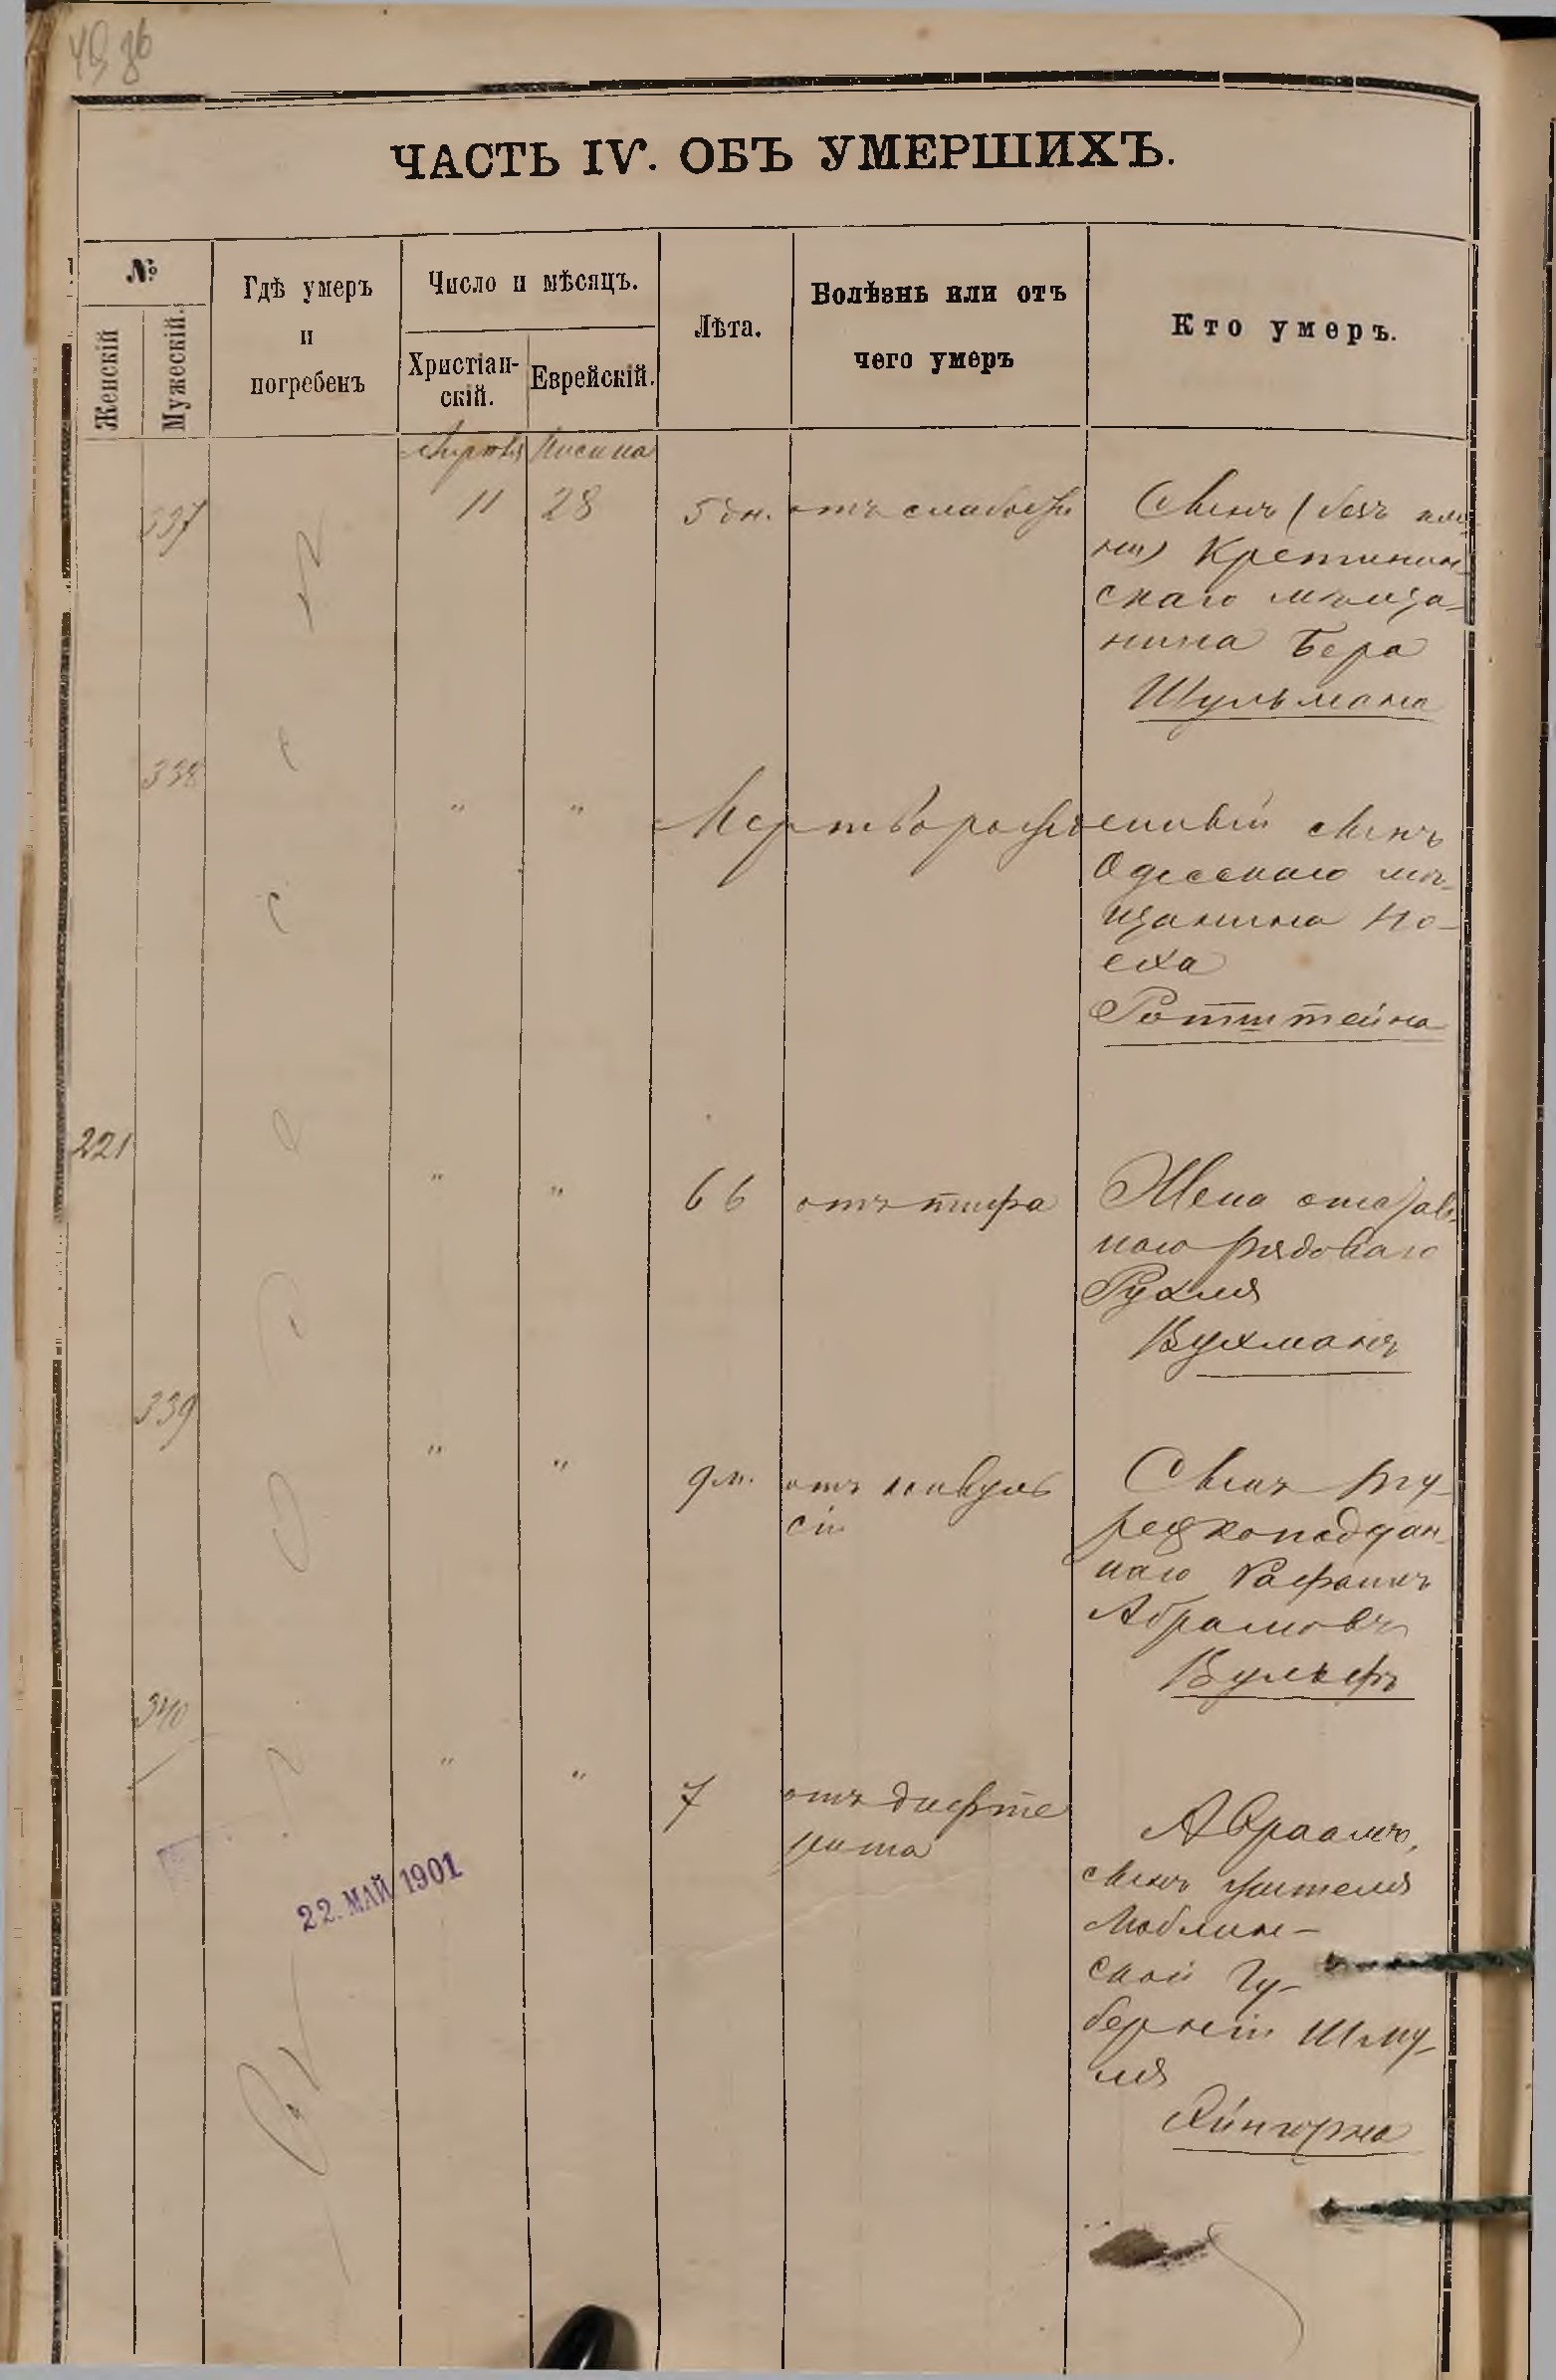 ЧАСТЬ IV. ОБЪ УМЕРШИХЪ.
№
Женскій
Мужескій.
Гдѣ умеръ
и
погребенъ
Число и мѣсяцъ.
Христіан-
скій.
Еврейскій.
Лѣта.
Болѣзнь или отъ
чего умеръ
Кто умеръ.
Апрѣля Нисана
337 11 28 5 дн. отъ слабости
Сынъ (безъ име-
ни) Кретинин-
скаго мѣща-
нина Бера
Шульмана
338 " " Мерт ворожденный сынъ
Одесскаго мѣ-
щанина Но-
еха
Ротштейна
221 " " 66 отъ тифа
Жена отстав-
наго рядоваго
Рухля
Вухманъ
339 " " 9 м. отъ конвуль
сіи
Сынъ ту-
рецкоподдан-
наго
Абрамовъ
340 " " 7 отъ дифте
рита
Авраамъ,
сынъ жителя
Люблин-
ской Гу-
берніи Шму-
ля
Айнгорна
22. МАЙ 1901